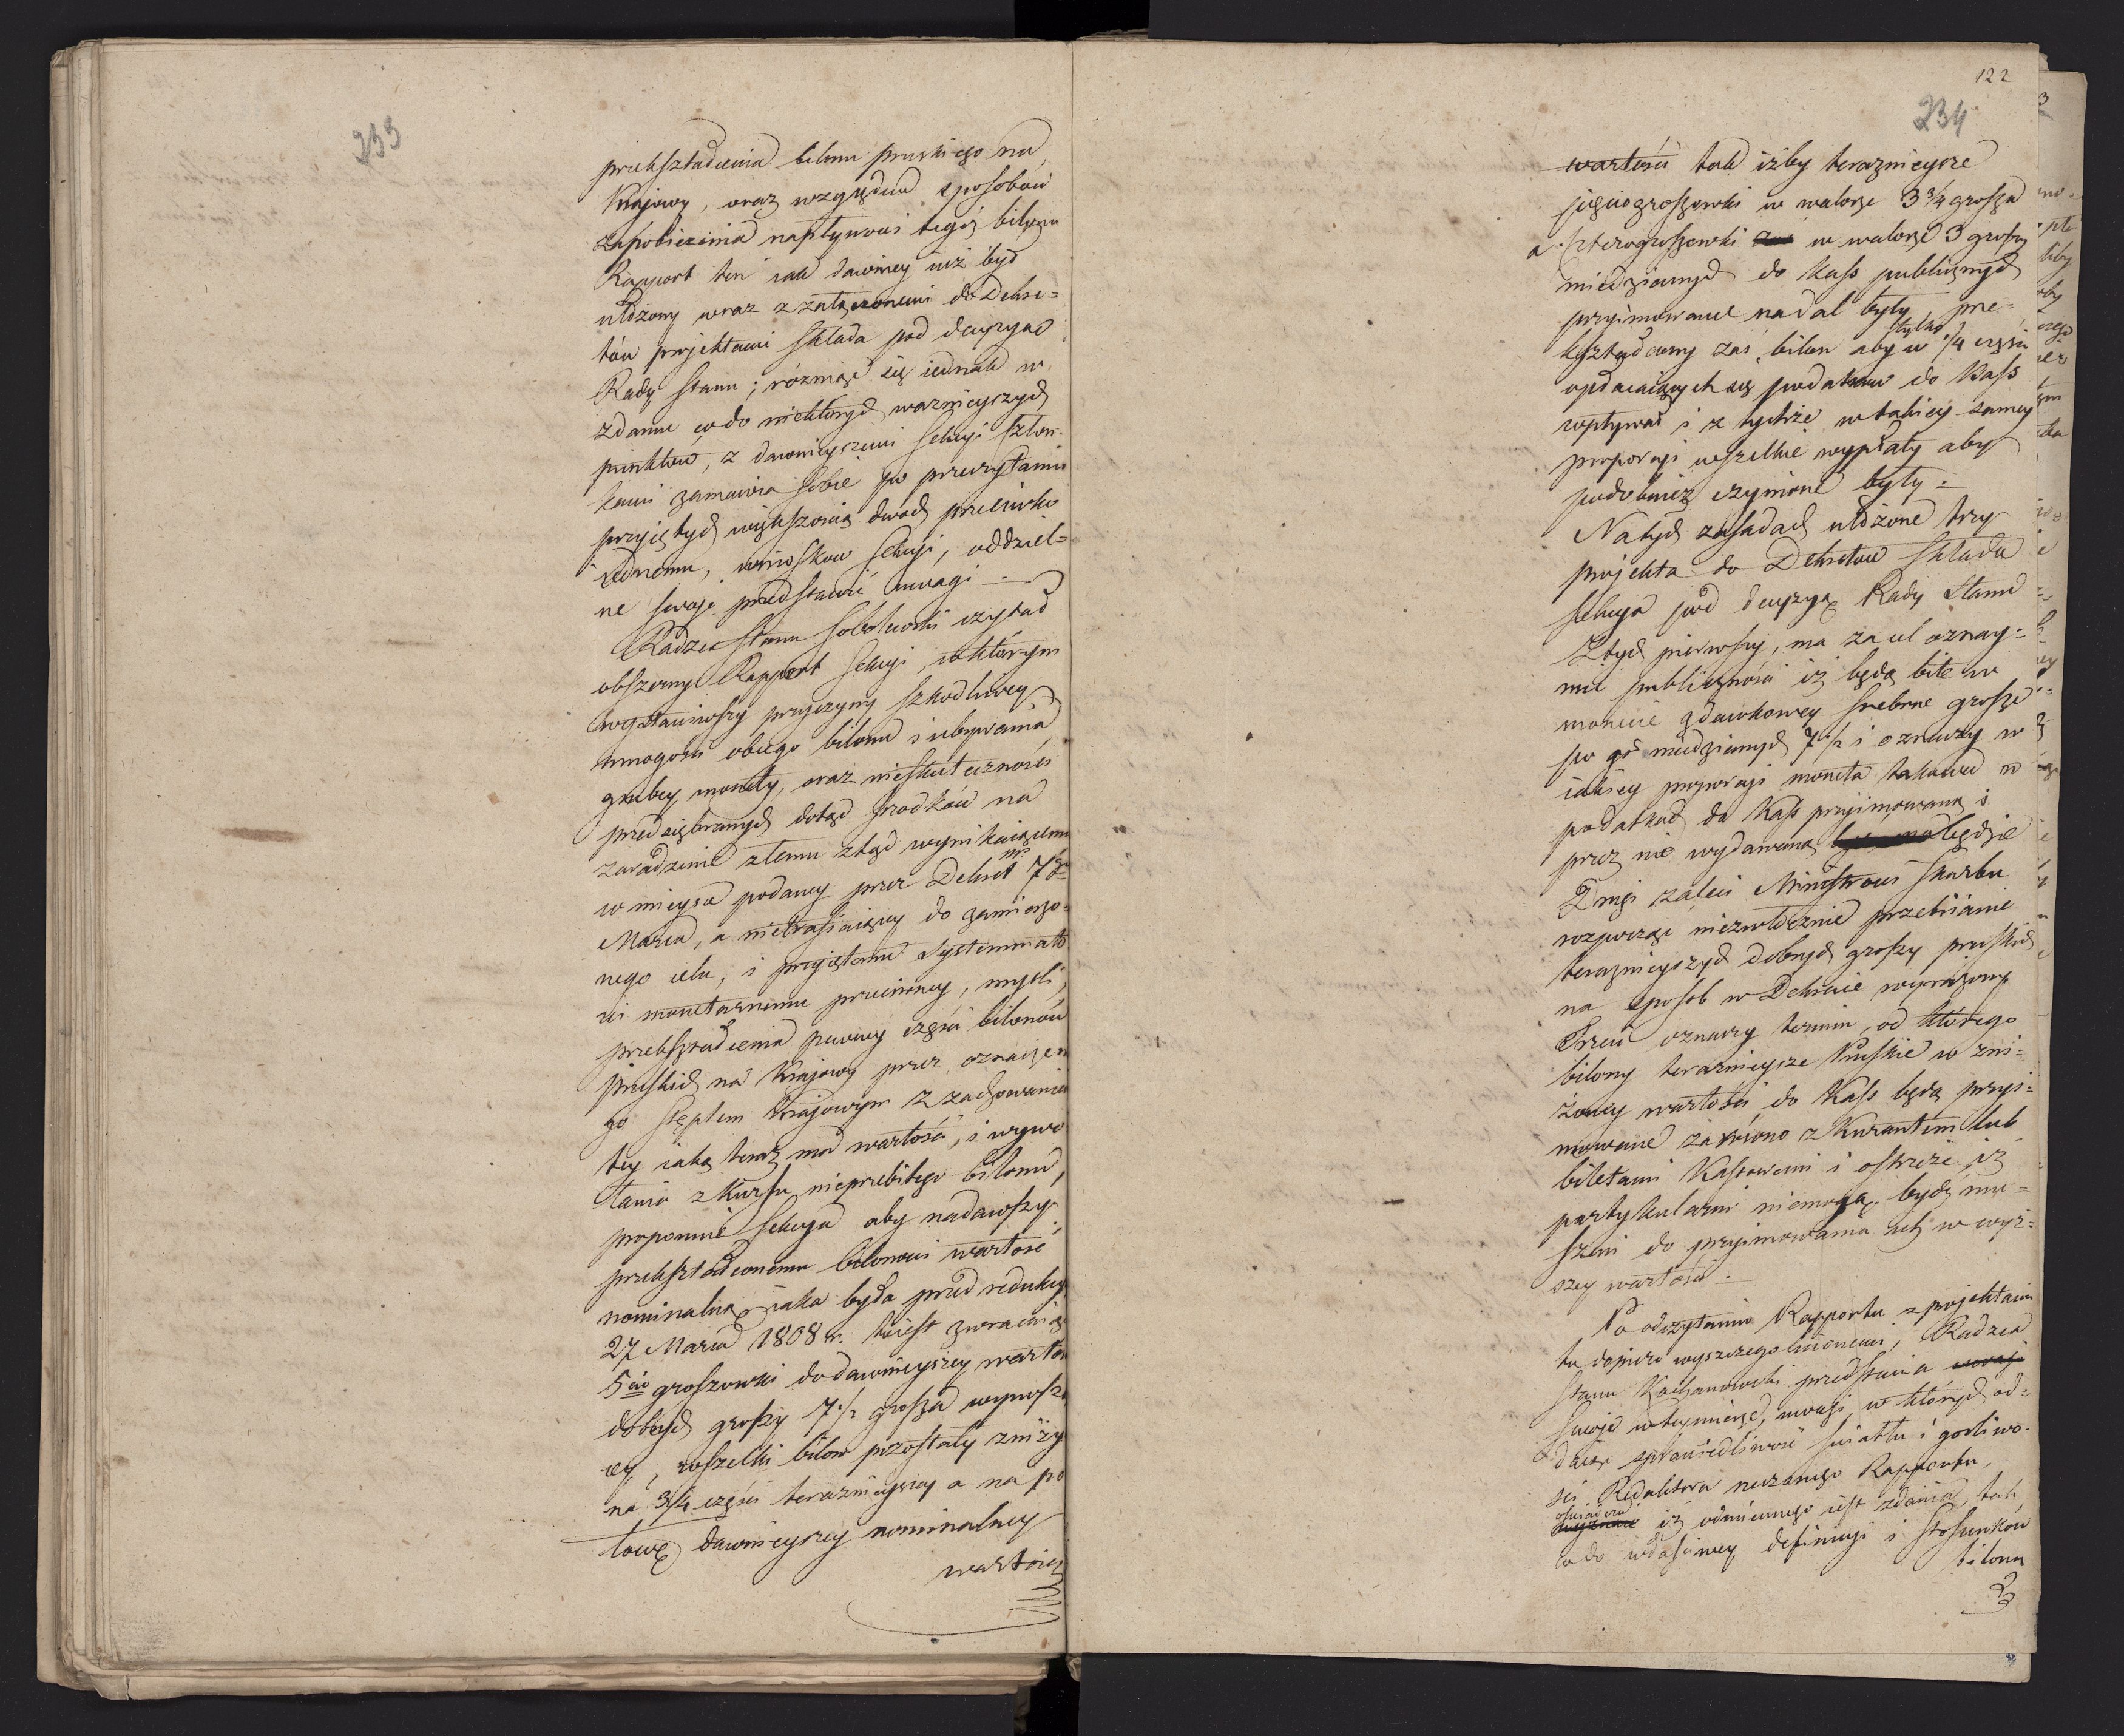 233
przekształcenia bilonu pruskiego na
Krajowy, oraz względem sposobów
zapobieżenia napływowi tegoż bilonu
Rapport ten iak dawniey iuż był
ułożony wraz z załączonemi do Dekre=
tów projektami składa pod decyzyą
Rady Stanu; różniąc się iednak w
zdaniu co do niektórych ważnieyszych
punktów, z dawnieyszemi Sekcyi człon=
kami zamawia sobie po przeczytaniu
przyiętych większością dwóch przeciwko
iednemu, wniosków Sekcyi, oddziel=
ne swoje przedstawić uwagi —
Radzca Stanu Sobolewski czytał
obszerny Rapport Sekcyi, w którym
wystawiwszy przyczyny szkodliwey
mnogości obcego bilonu i ubywania
grubey monety, oraz nieskuteczności
przedsięwziętych dotąd środków na
zaradzenie złemu ztąd wynikaiącemu
w mieysce podaney przez Dekret 7go
Marca, a nietrafiaiącey do zamierzo=
nego celu, i przyiętemu Systemmato
wi monetarnemu przeciwney, myśli,
przekształcenia pewney części bilonów
pruskich na Krajowy przez oznaczen
go stęplem Krajowym z zachowaniem
tey iaką teraz ma wartość, i wywo
łania z kursu nieprzebitego bilonu,
proponuie Sekcya aby nadawszy
przekształconemu bilonowi wartość
nominalną iaka była przed redukcyą
27 Marca 1808 r. to iest zwracaiąc
5cio groszowki do dawnieyszey warto
dobrych groszy 7 1/2 grosza wynosz
cey, wszelki bilon pozostały zniży
na 3/4 części teraźnieyszey a na po
łowę dawnieyszey nominalney
wartości
122
234
wartości tak iżby teraznieysze
pięciogroszowki w walorze 3 3/4 grosza
a czterogroszowki zaś w walorze 3 groszy
miedzianych do Kass publicznych
przyimowane nadal były, prze=
kształcony zaś bilon aby w tylko 1/4 części
opłacaiących się podatków do Kass
wpływał i z tychże w takiey samey
proporcyi wszelkie wypłaty aby
podobnież czynione były.
Na tych zasadach ułożone trzy
projekta do Dekretów składa
Sekcya pod decyzyą Rady Stanu
Z tych pierwszy, ma za cel oznay=
mić publiczności iż będą bite w
monecie zdawkowey srebrne grosze
po gr miedzianych 7 1/2 i oznaczy w
iakiey proporcyi moneta takowa w
podatkach do Kass przyimowaną i
przez nie wydawaną będzie
Drugi zaleci Ministrowi Skarbu
rozpocząć niezwłocznie przebiianie
teraznieyszych dobrych groszy pruskich
na sposób w Dekrecie wyrażony
Trzeci oznaczy termin, od którego
bilony teraznieysze Pruskie w zni=
żoney wartości do Kass będą przyi=
mowane za równo z Kurantem lub
biletami Kassowemi i ostrzeże iż
partykularni niemogą bydź mu=
szeni do przyimowania ich w wyż=
szey wartości.
Po odczytaniu Rapportu z projektami
tu dopiero wyszczególnionemi, Radzca
Stanu Kochanowski przedstawia uwagi
swoje w tey mierze, uwagi w których od=
daiąc sprawiedliwość światłu i gorliwo=
ści Redaktora rzeczonego Rapportu,
oświadcza iż odmiennego iest zdania tak
co do właściwey definicyi i stosunków
bilonu